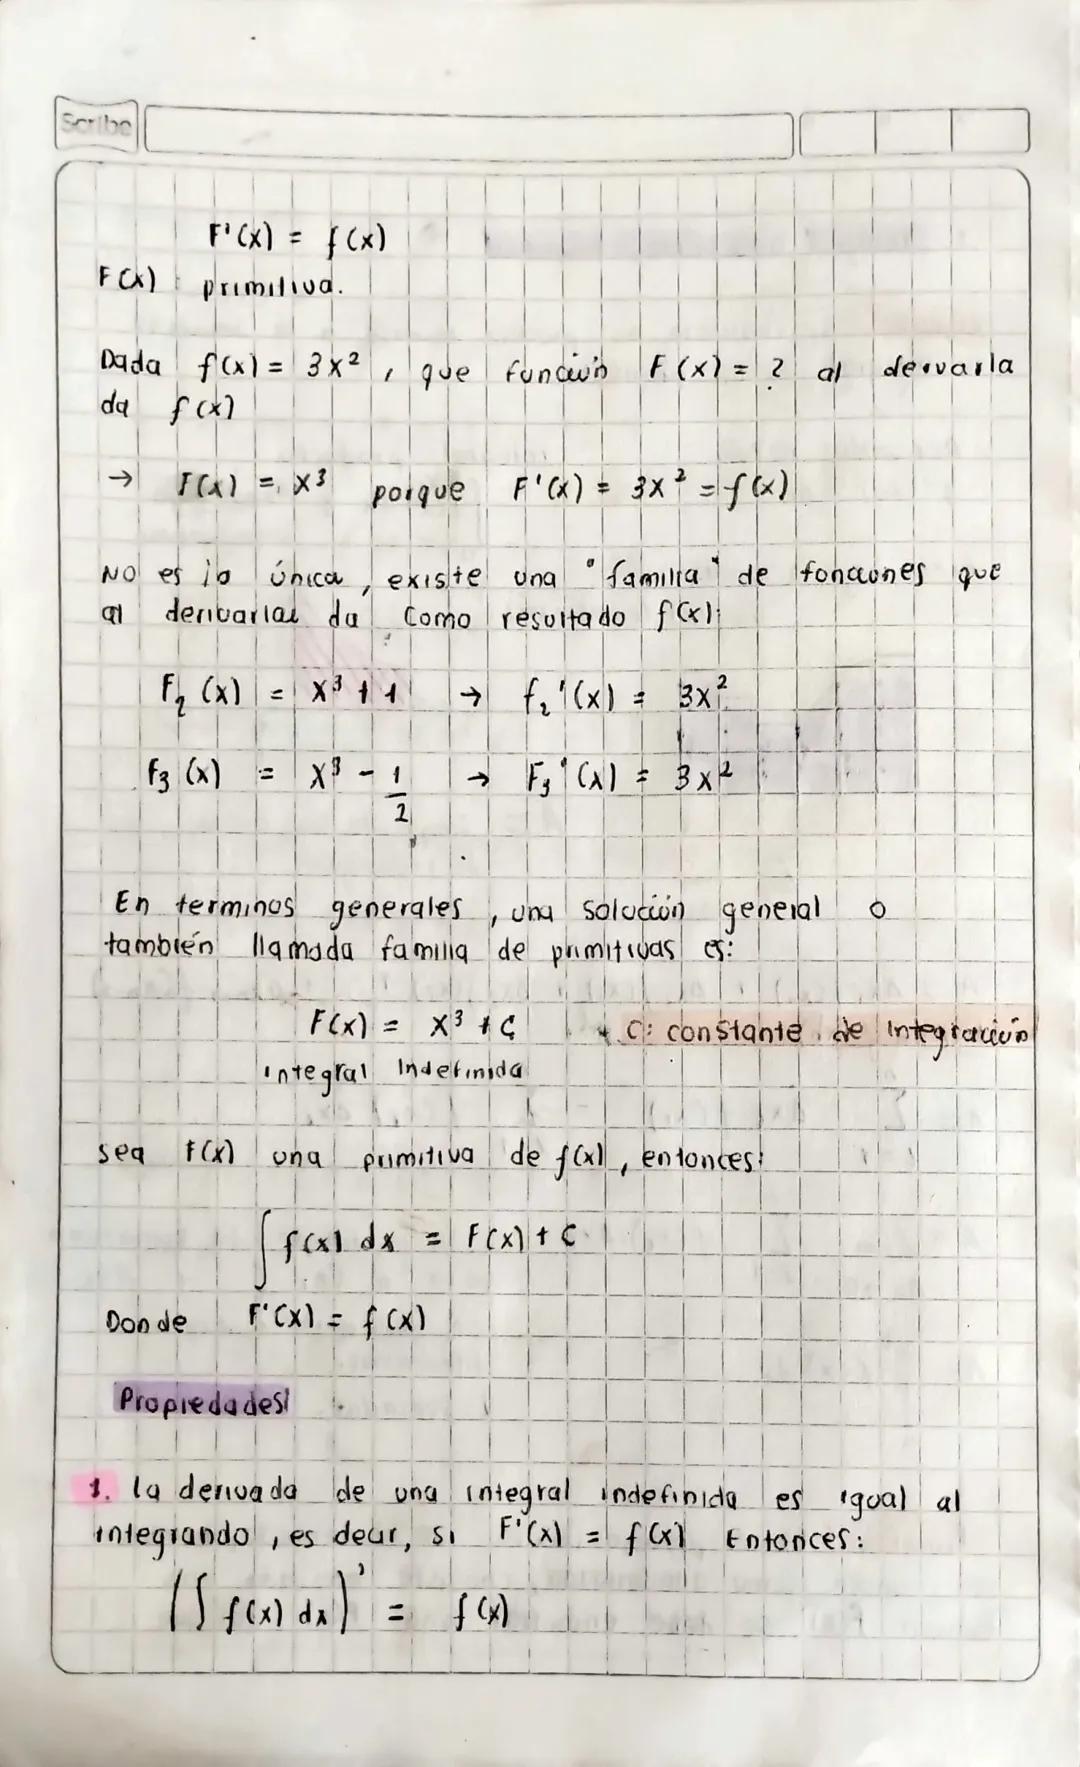 Scribe
F'(x) = f(x)
F(x) : primitiva.
Dada f(x) = 3x² , que función F(x) = ? al derivarla
da f(x)
→ F(x) = x³ porque F'(x) = 3x² = f(x)
NO es la única , existe una "familia" de funciones que
al derivarlas da como resultado f(x):
F₂ (x) = x³ + 1 → f₂'(x) = 3x²
f₃ (x) = x³ - 1/2 → F₃'(x) = 3x²
En terminos general​es , una solución general o
también llamada familia de primitivas es:
F(x) = x³ + C C: constante de integración
integral Indefinida
sea F(x) una primitiva de f(x) , entonces:
∫ f(x) dx = F(x) + C
Donde F'(x) = f(x)
Propiedades:
1. la derivada de una integral indefinida es igual al
integrando , es decir, si F'(x) = f(x) Entonces:
(∫ f(x) dx)' = f(x)